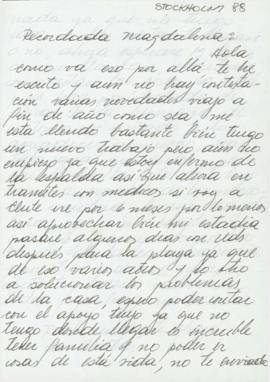 STOCKHOLM 88
Recordada Magdalena:
Hola
como va eso por allá te he
escrito y aún no hay contesta-
ción varias novedades viajo a
fin de año como sea, me
esta llendo bastante bien tengo
un nuevo trabajo pero aún no
empiezo ya que estoy enfermo de
la espaldia así que ahora en
tramites con medicos si voy a
Chile ire por 6 meses por lo menos
así aprovechar bien mi estadia
pasare algunos dias con uds
después para la playa ya que
de eso varios años y lo otro
a solucionar los problemas
de la casa, espero poder contar
con el apoyo tuyo ya que no
tengo donde llegar lo increible
tener familia y no poder
cosas de esta vida, no te